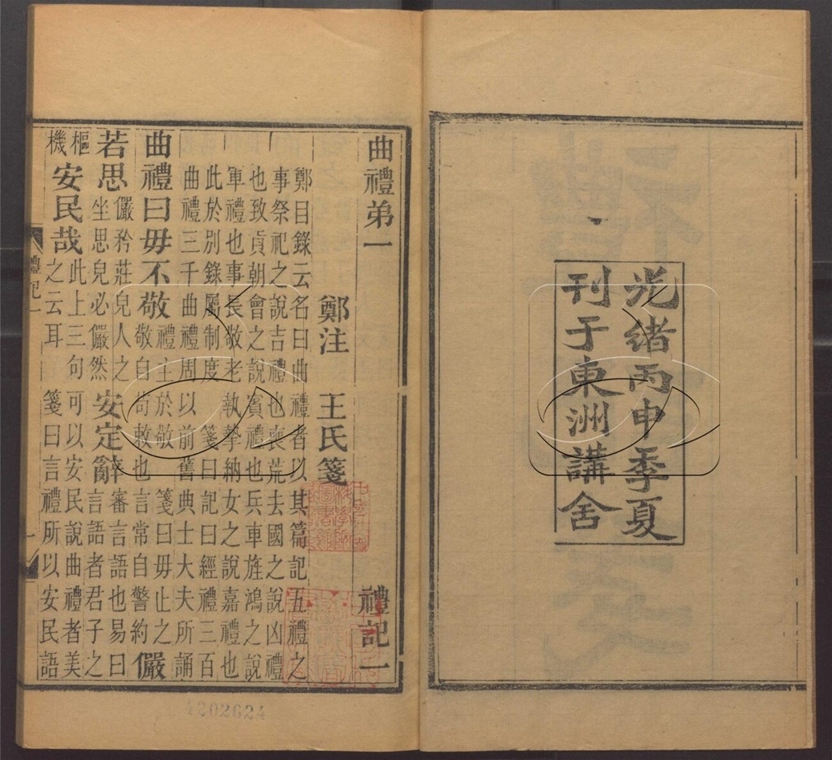 光緒丙申季夏
刊于東洲講舍
曲禮弟一 禮記一
鄭注 王氏箋
鄭目錄云名曰曲禮者以其篇記五禮之
事祭祀之說吉禮也喪荒去國之說凶禮
也致貢朝會之說賓禮也兵車旌鴻之說
軍禮也事長敬老執摯納女之說嘉禮也
此於別錄屬制度 箋曰記曰經禮三百
曲禮三千曲禮周以前舊典士大夫所誦
曲禮曰毋不敬禮主於敬 箋曰毋止之敬自苟敕也言常自警約儼
若思儼矜莊皃人之坐思皃必儼然安定辭審言語也易曰言語者君子之
樞機安民哉此上三句可以安民說曲禮者美之云耳 箋曰言禮所以安民語
禮記一
一
4202624